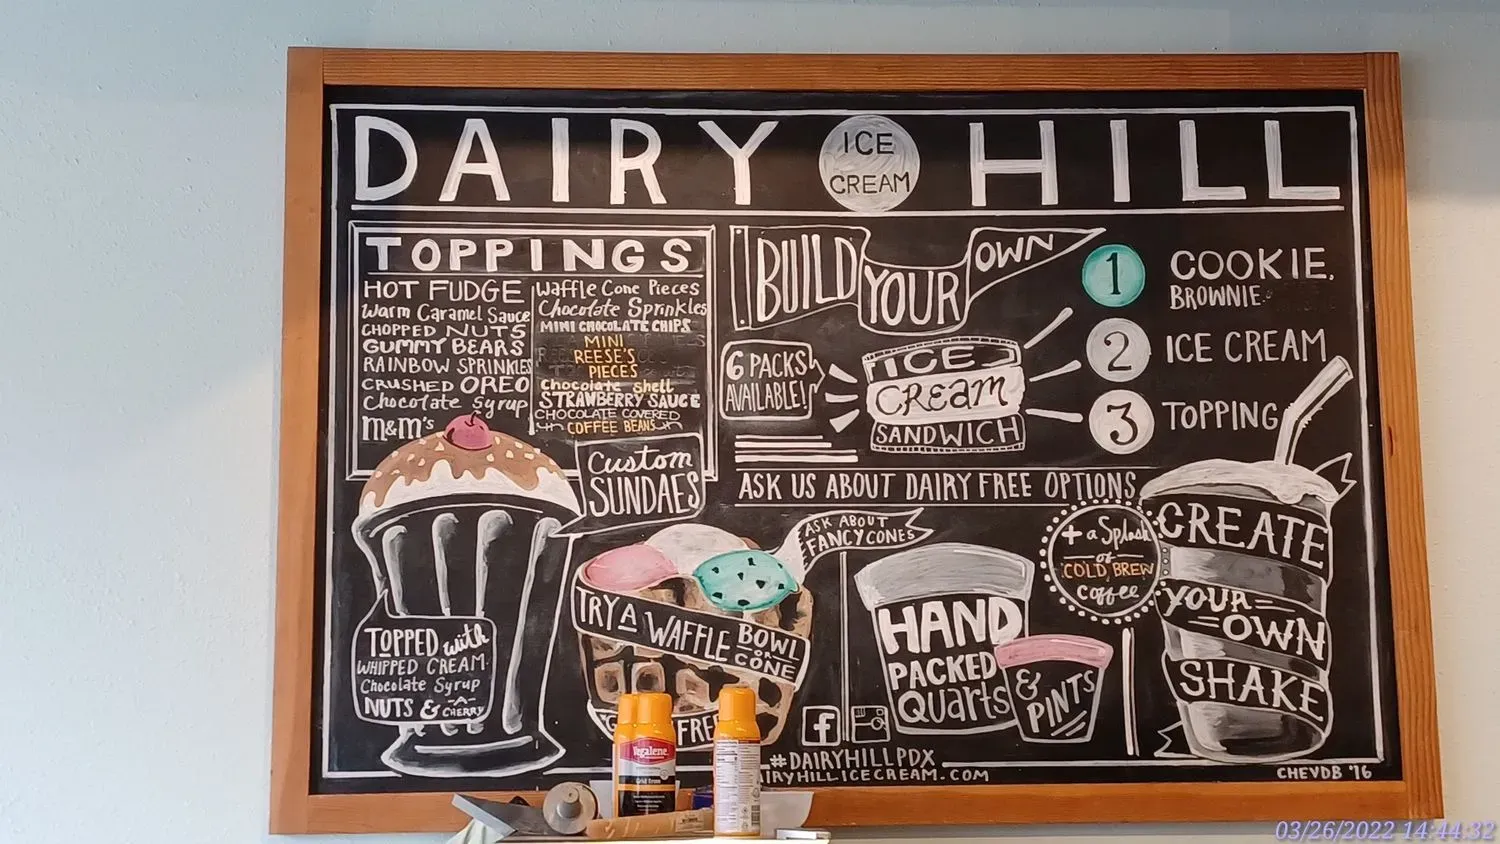 DAIRY ICE CREAM HILL
TOPPINGS
HOT FUDGE
Warm Caramel Sauce
CHOPPED NUTS
GUMMY BEARS
RAINBOW SPRINKLES
CRUSHED OREO
Chocolate Syrup
M&M's
Waffle Cone Pieces
Chocolate Sprinkles
MINI CHOCOLATE CHIPS
MINI
REESE'S
PIECES
Chocolate Shell
STRAWBERRY SAUCE
CHOCOLATE COVERED
COFFEE BEANS
Custom
SUNDAES
TOPPED with
WHIPPED CREAM
Chocolate Syrup
NUTS & -A-
CHERRY
BUILD YOUR OWN
6 PACKS
AVAILABLE!
ICE
CREAM
SANDWICH
1 COOKIE,
BROWNIE
2 ICE CREAM
3 TOPPING
ASK US ABOUT DAIRY FREE OPTIONS
ASK ABOUT
FANCY CONES
TRY A WAFFLE BOWL
OR
CONE
FREE
HAND
PACKED
Quarts
&
PINTS
+ a Splash
of
COLD BREW
coffee
CREATE
YOUR
OWN
SHAKE
f
#DAIRYHILLPDX
AIRYHILLICECREAM.COM
CHEVDB '16
Vegalene
03/26/2022 14:44:32